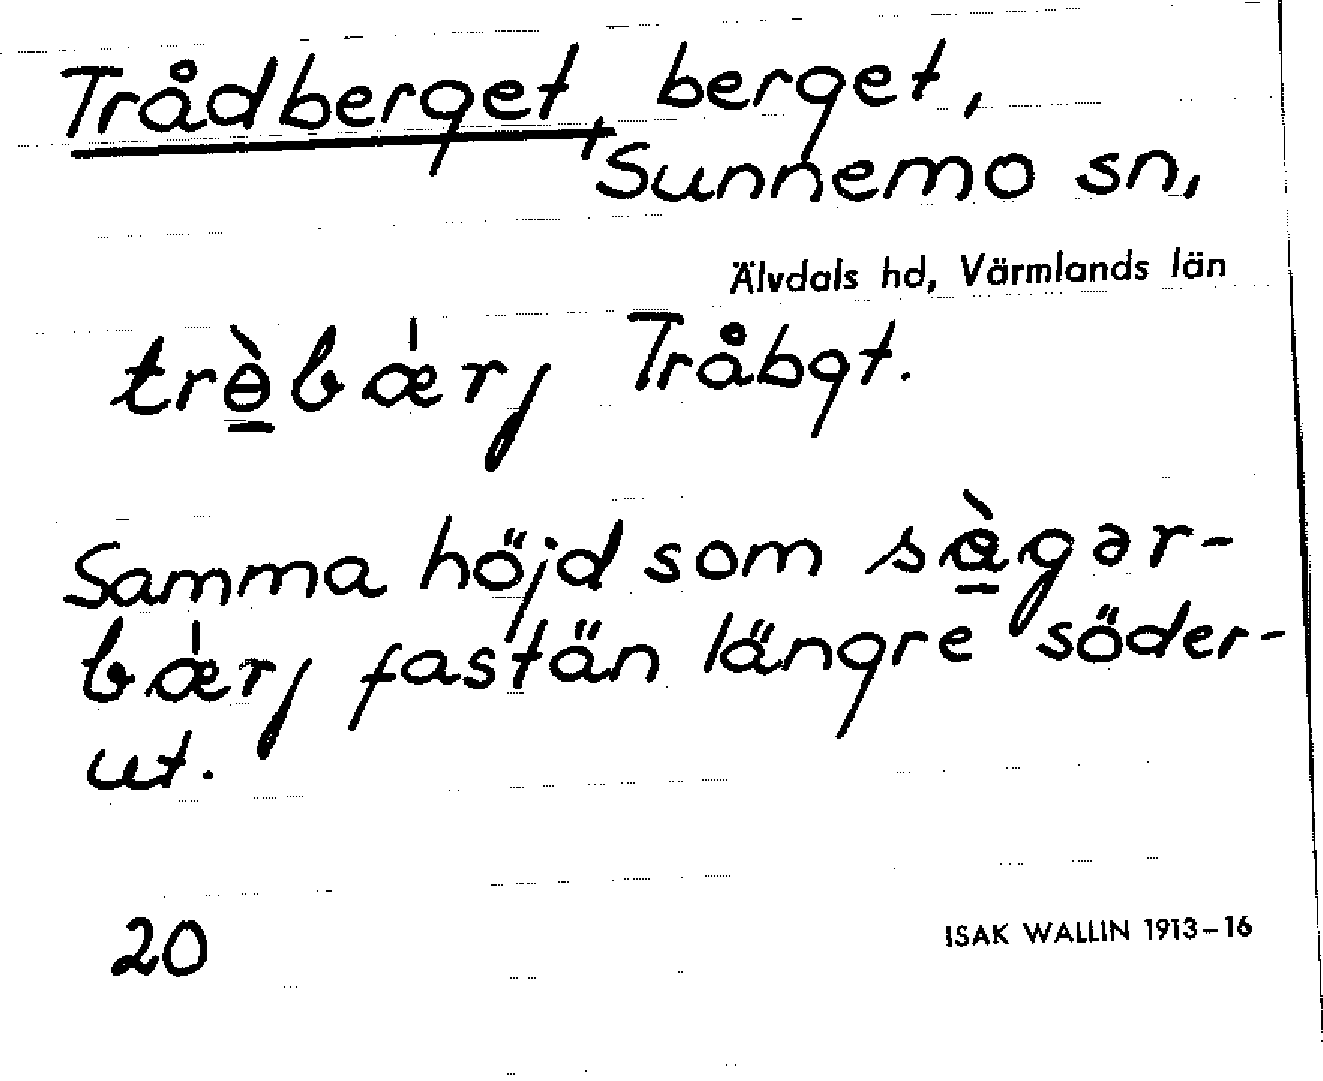 Trådberget, berget,
Sunnemo sn,
Älvdals hd, Värmlands län
trɵ̠̀bæ̍rj Tråbgt.
Samma höjd som sà̠gər-
bæ̍rj fastän längre söder-
ut.
20
ISAK WALLIN 1913–16